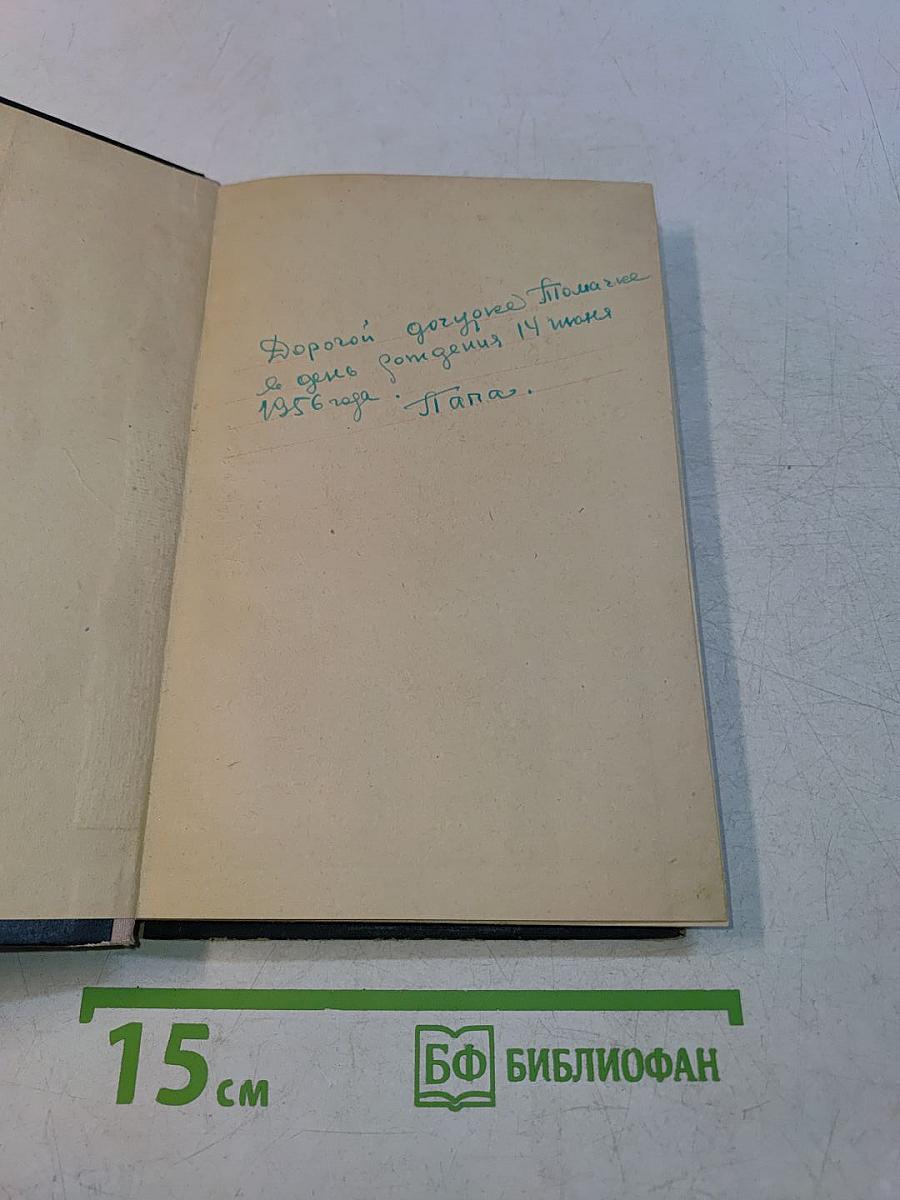 Дорогой дочурке Томачке
в день рождения 14 июня
1956 года. Папа.
15 см
БФ БИБЛИОФАН